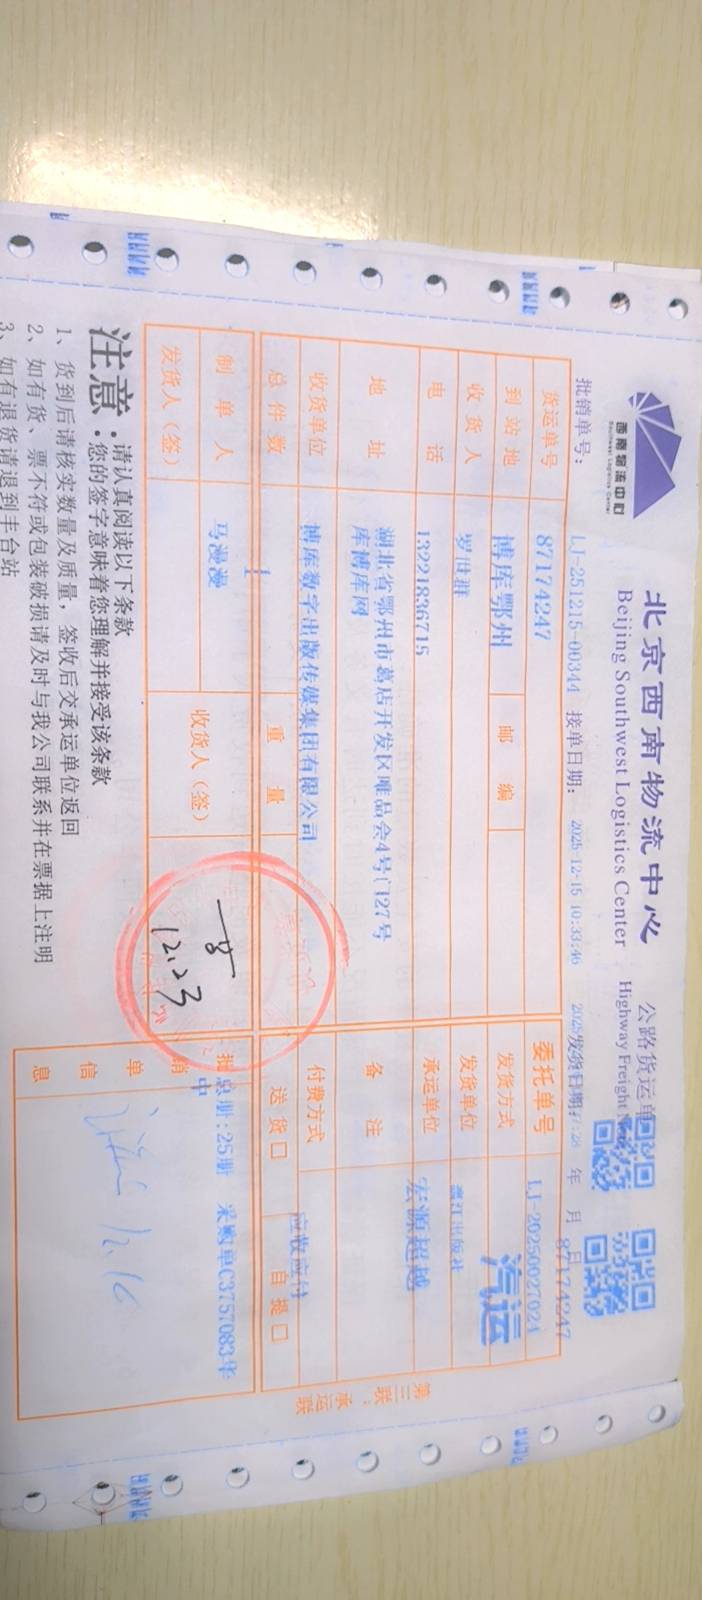 西南物流中心
Southwest Logistics Center
北京西南物流中心 公路货运单
Beijing Southwest Logistics Center Highway Freight
批销单号: LJ-251215-00344 接单日期: 2025-12-15 10:33:46 发货日期: 年 月 日
87174247
货运单号 87174247 委托单号 LJ-20250027024
到站地 博库鄂州 邮编 发货方式 汽运
收货人 罗世群 发货单位 出版社
电话 13221836715 承运单位 宏源超越
地址 湖北省鄂州市葛店开发区唯品会4号门27号
库博库网
备注
收货单位 博库数字出版传媒集团有限公司 付费方式 应收应付
总件数 1 重量 送货口 自提口
制单人 马漫漫
发货人(签) 收货人(签)
12.23
批销单信息
总册:25册 采购单C3757083华
中
12.16
第三联:承运联
注意:
请认真阅读以下条款
您的签字意味着您理解并接受该条款
1、货到后请核实数量及质量,签收后交承运单位返回
2、如有货、票不符或包装破损请及时与我公司联系并在票据上注明
3、如有退货请退到丰台站